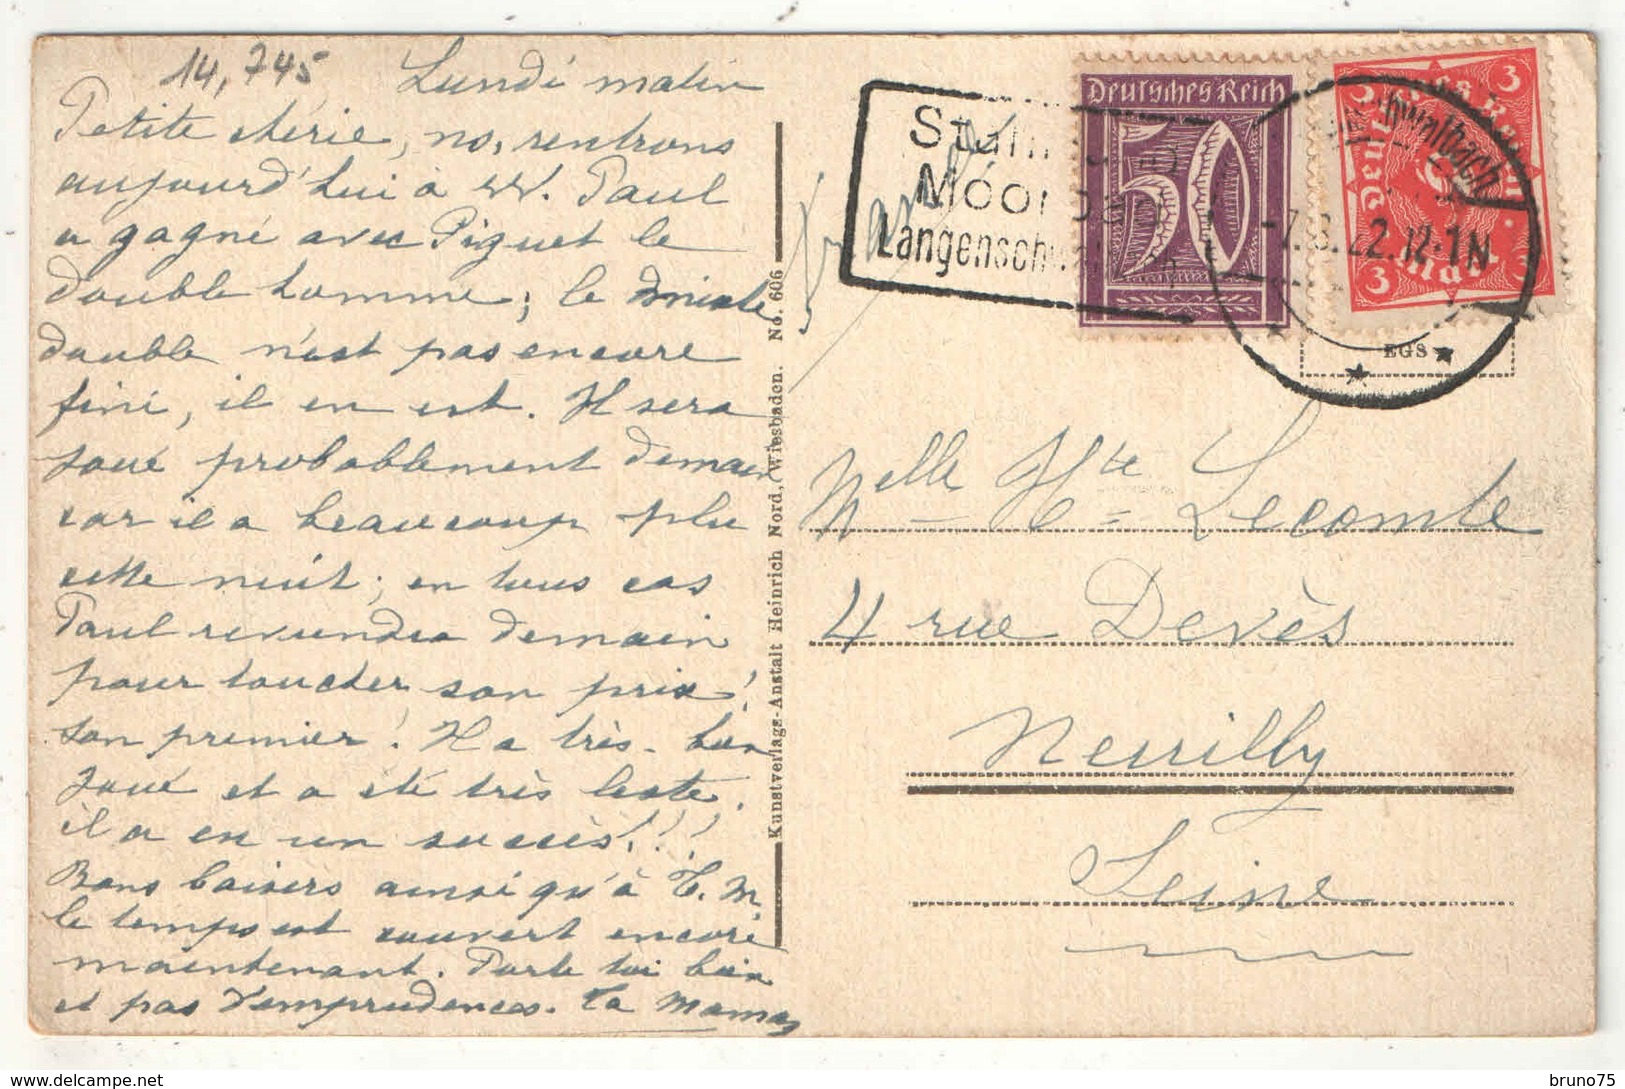 14,745 Lundi matin
Petite chérie, ns, rentrons
aujourd'hui à W. Paul
a gagné avec Piguet le
double homme; le mixte
double n'est pas encore
fini, il en est. Il sera
joué probablement demain
car il a beaucoup plu
cette nuit; en tous cas
Paul reviendra demain
pour toucher son prix!
son premier! Il a très-bien
joué et a été très leste,
il a eu un succès!!!
Bons baisers ainsi qu'à T. M.
le temps est couvert encore
maintenant. Porte toi bien
et pas d'emprudences. Ta Maman
Kunstverlags-Anstalt Heinrich Nord, Wiesbaden. No. 606
Stahl
Moor
Langensch
Deutsches Reich
50
3 3
3 3
-7.8.22.12-1N
EGS
Melle Hte Lecomte
4 rue Devès
Neuilly
Seine
bruno75